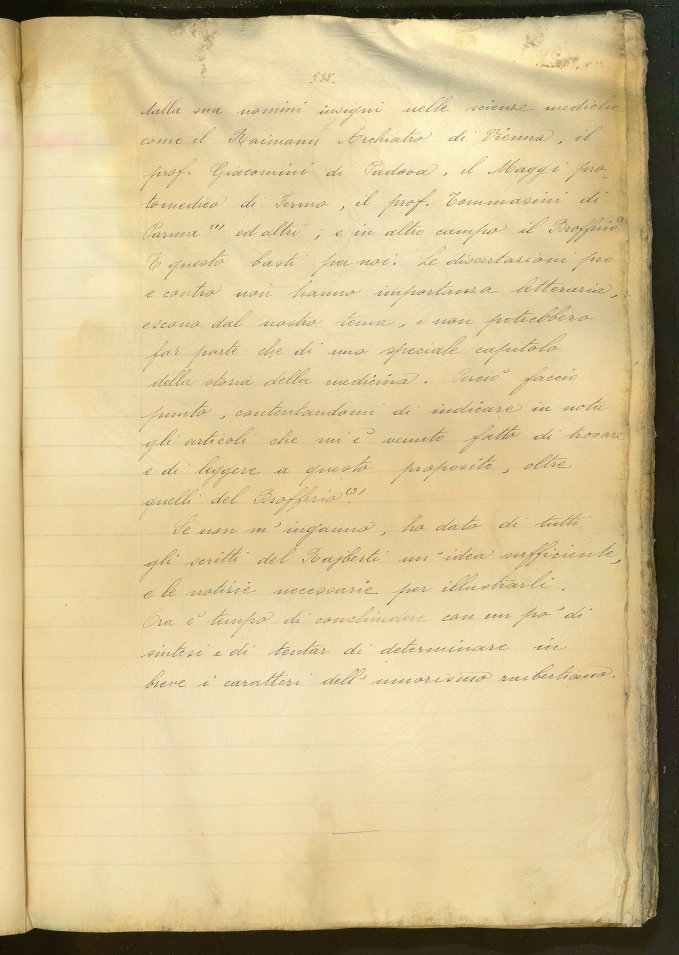 dalla sua uomini insigni nelle scienze mediche
come il Raimann Archiatro di Vienna, il
prof. Giacomini di Padova, il Maggi pro-
tomedico di Fermo, il prof. Tommasini di
Parma (1) ed altri; e in altro campo il Brofferio
E questo basti per noi. Le dissertazioni pro
e contro non hanno importanza letteraria,
escono dal nostro tema, e non potrebbero
far parte che di uno speciale capitolo
della storia della medicina. Perciò faccio
punto, contentandomi di indicare in nota
gli articoli che mi è venuto fatto di trovare
e di leggere a questo proposito, oltre
quelli del Brofferio (3).
Se non m'inganno, ho dato di tutti
gli scritti del Rajberti un'idea sufficiente,
e le notizie necessarie per illustrarli.
Ora è tempo di conchiudere con un po' di
sintesi e di tentar di determinare in
breve i caratteri dell'umorismo raibertiano.